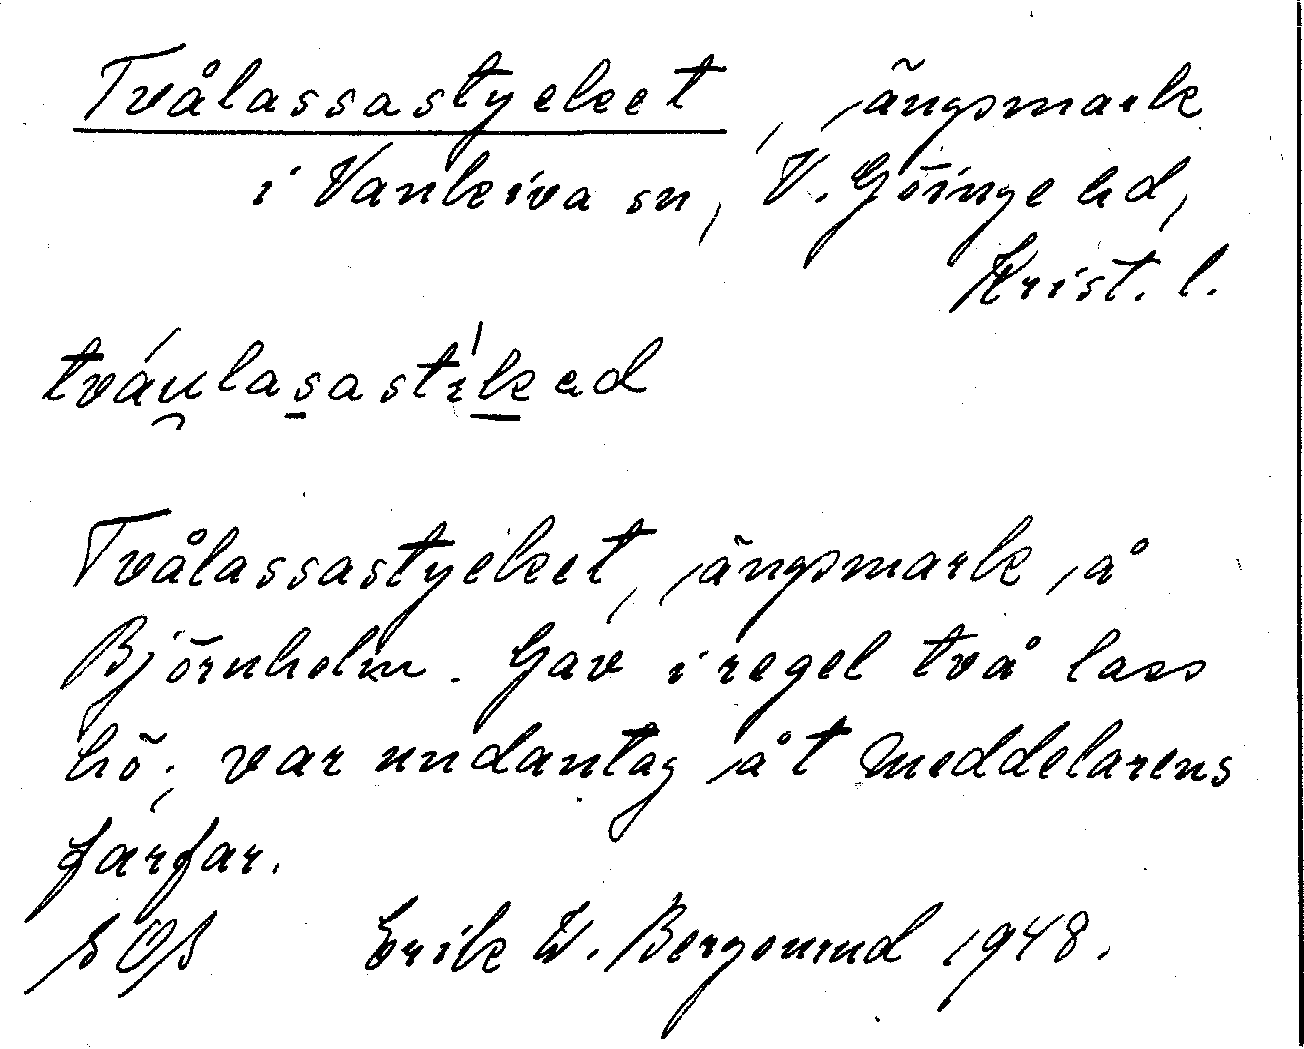 Tvålassastycket, ängsmark
i Vankiva sn, V. Göinge hd,
Krist. l.
tváu̯lasastíkəd
Tvålassastycket, ängsmark å
Björnholm. Gav i regel två lass
hö; var undantag åt meddelarens
farfar.
SOS Erik W. Bergonrud 1948.